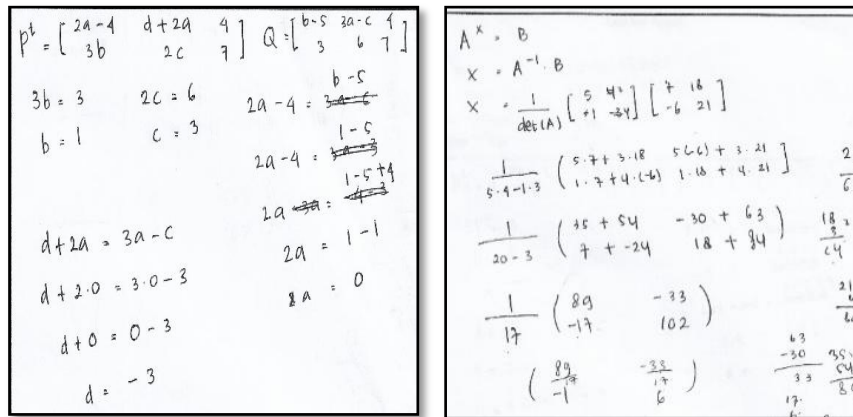 P^t = [ 2a-4 d+2a 4
3b 2c 7 ] Q = [ b-5 3a-c 4
3 6 7 ]
3b = 3 2c = 6
b = 1 c = 3
b-5
2a-4 =
1-5
2a-4 =
1-5+4
2a =
2a = 1-1
8a = 0
d+2a = 3a-c
d+2.0 = 3.0-3
d+0 = 0-3
d = -3
A^x = B
x = A^-1 . B
x = 1/det(A) [ 5
-1 ] [ 7 18
-6 21 ]
1/5.4-1.3 ( 5.7+3.18 5(-6)+3.21
1.7+4.(-6) 1.18+4.21 ]
1/20-3 ( 35+54 -30+63
7+-24 18+84 )
1/17 ( 89 -33
-17 102 )
( 89/17 -33/17
-1 6 )
63
-30
33
17.